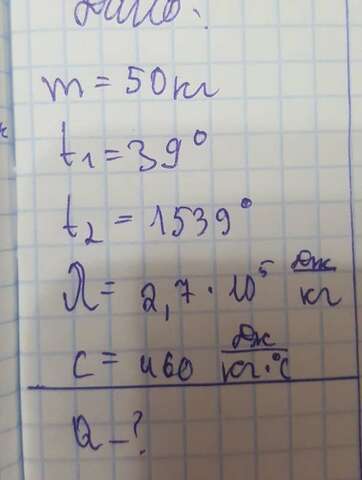 Дано:
m = 50 кг
t₁ = 39°
t₂ = 1539°
λ = 2,7 · 10⁵ Дж/кг
c = 460 Дж/кг·°C
Q - ?